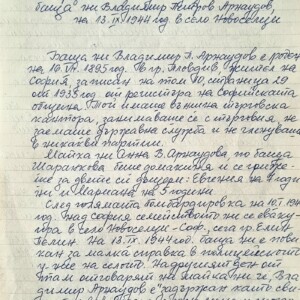 баща ни Владимир Петров Арнаудов,
на 13.IX.1944 год в село Новоселци
Баща ни Владимир П. Арнаудов е роден
на 10.VII.1895 год. в гр. Пловдив, жител на
София, записан на том IV, страница 29
от 1933 год от регистъра на Софийската
община. Той имаше външна търговска
кантора, занимаваше се с търговия не
заемаше държавна служба и не членуваше
в никакви партии.
Майка ни Анна В. Арнаудова, по баща
беше домакиня и се грижеше
за двете си дъщери: Евгения на 9 годи
ни и Мариана на 5 години.
След голямата бомбардировка на 10.I.1944
год. над София семейството ни се еваку
ира в село Новоселци - Соф., сега гр. Елин
Пелин. На 13.IX.1944 год. баща ни е пови
кан за малка справка в полицейския
у-к на селото. На другия ден от
там отговарят на майка ни, че "Вла
димир Арнаудов е "задържан като сви